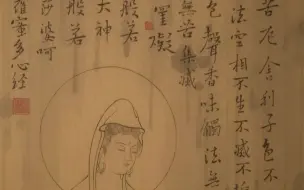 苦厄舍利子色不
法空相不生不滅不
色聲香味觸法無
無苦集滅
罣礙
般若
大神
般若
莎婆呵
羅蜜多心經